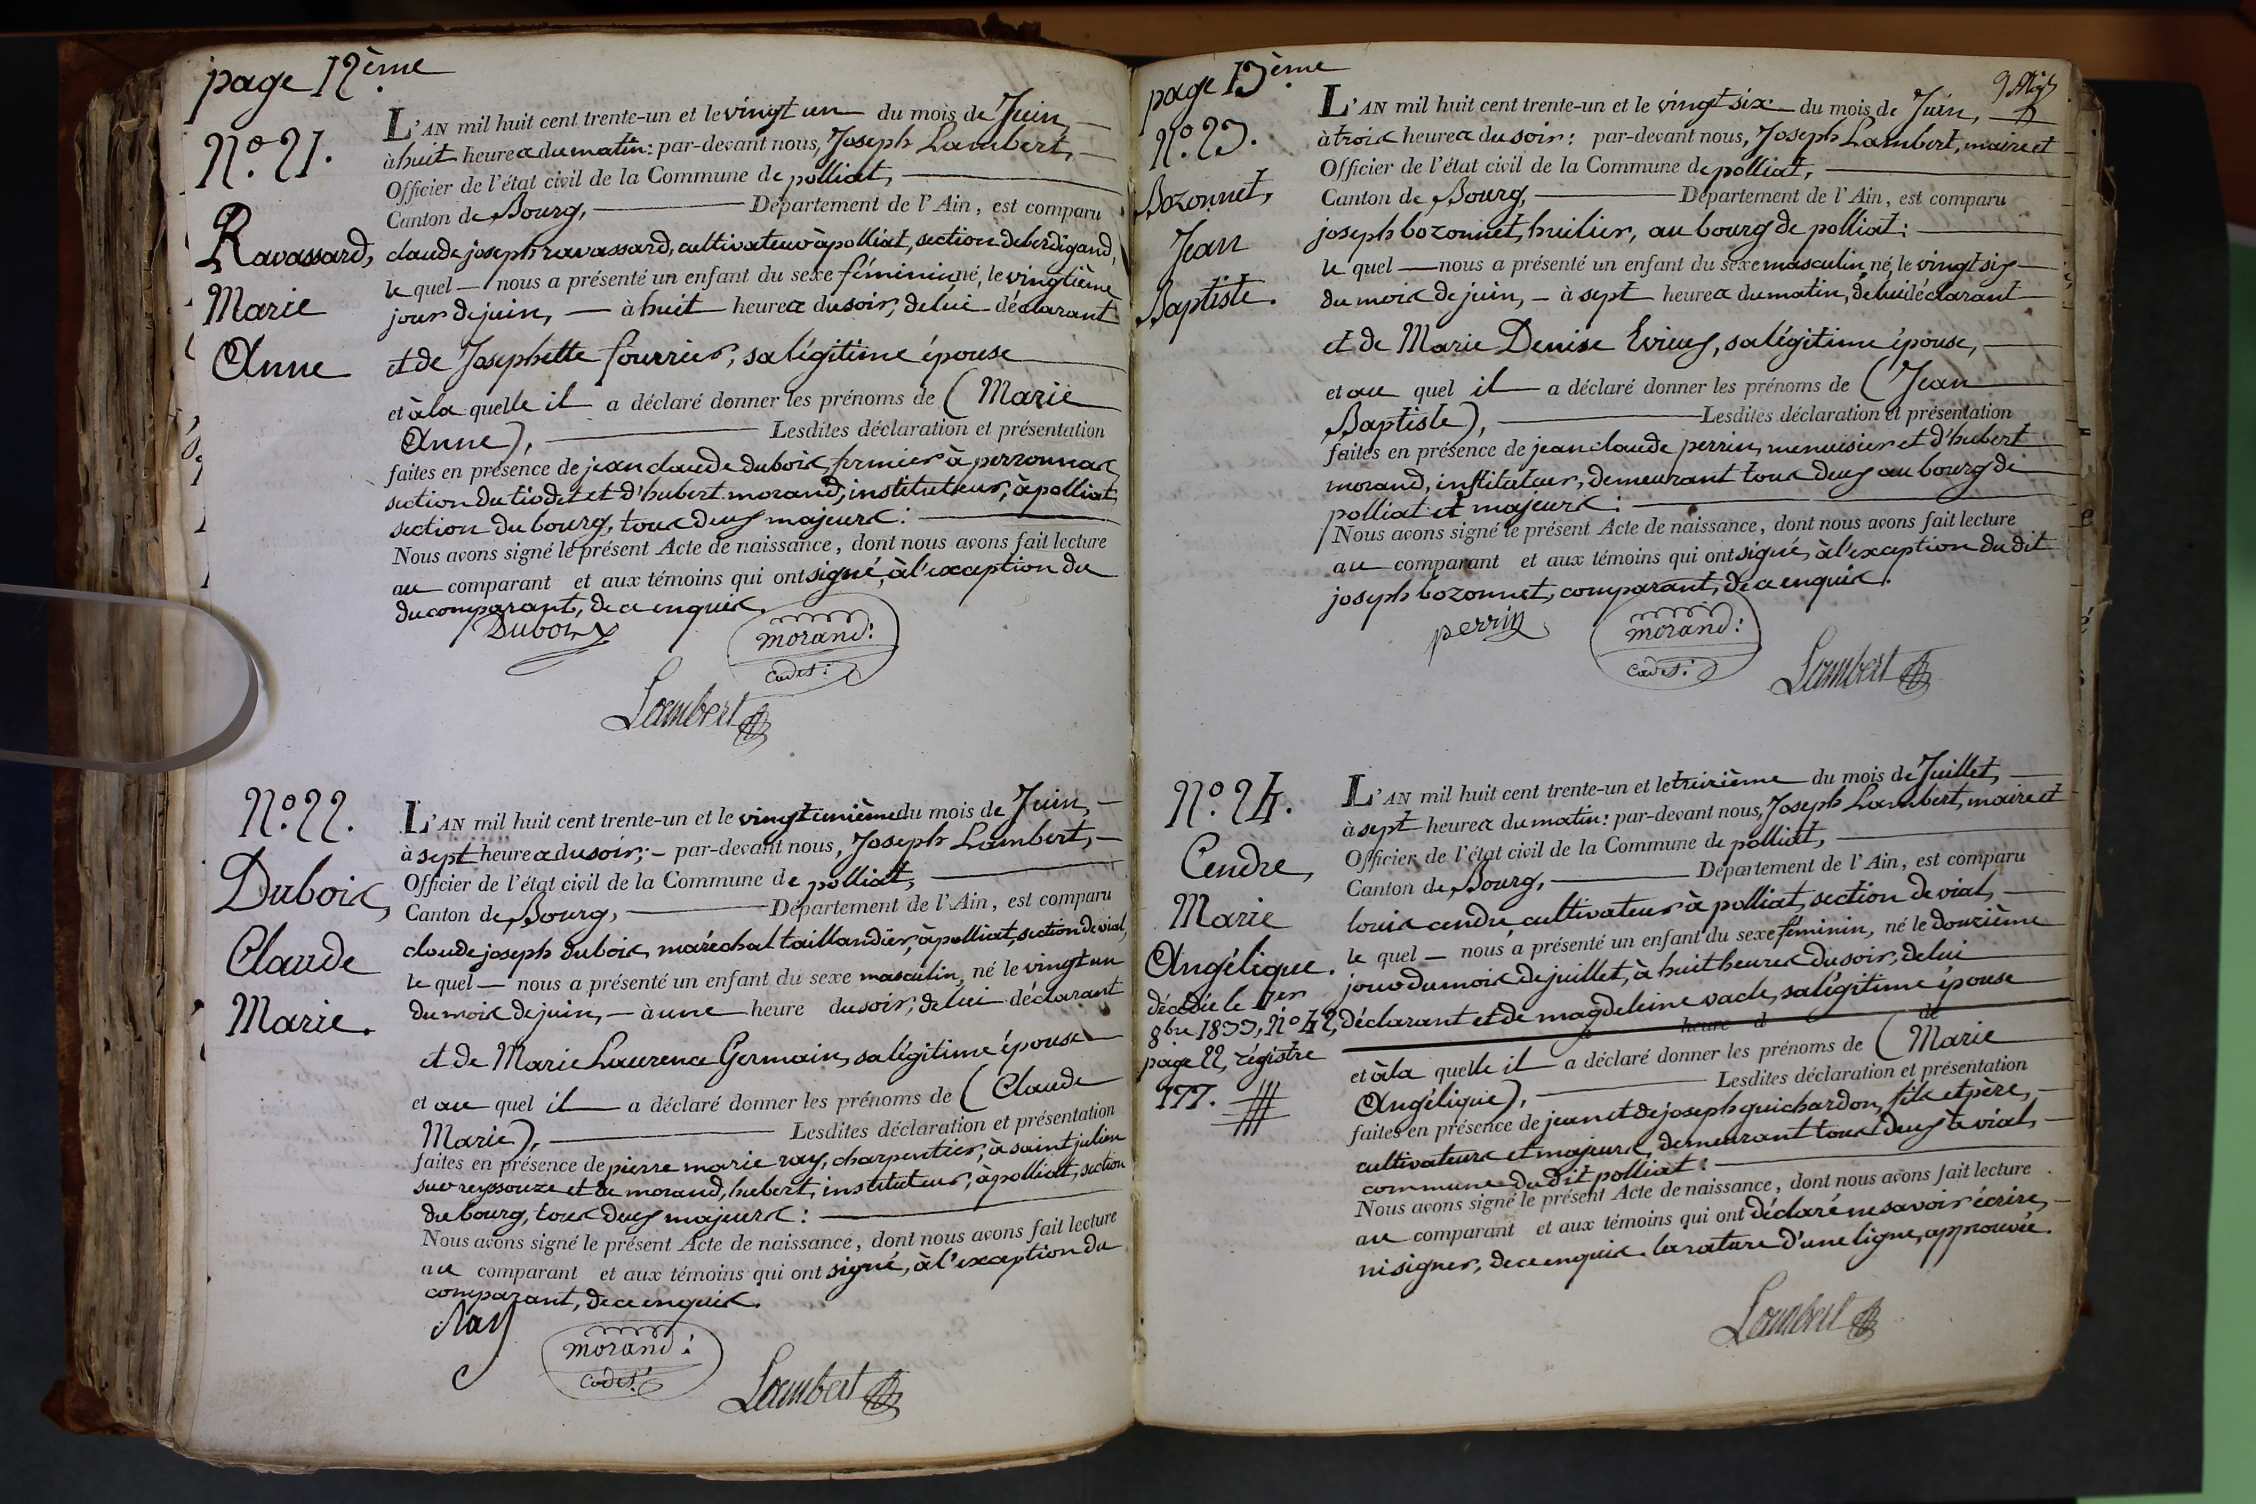 page 12ème
N.° 21.
Ravassard,
Marie
Anne
L'AN mil huit cent trente-un et le vingt un du mois de Juin,
à huit heures du matin: par-devant nous, Joseph Lambert,
Officier de l'état civil de la Commune de polliat,
Canton de Bourg, Département de l'Ain, est comparu
claude joseph ravassard, cultivateur à polliat, section de berdigand,
le quel nous a présenté un enfant du sexe féminin, né, le vingtième
jour de juin, à huit heures du soir, de lui déclarant
et de Josephette fourrier, sa légitime épouse
et à la quelle il a déclaré donner les prénoms de (Marie
Anne), Lesdites déclaration et présentation
faites en présence de jean claude dubois, fermier à perronnas,
section du tiodet et d'hubert morand, instituteur, à polliat,
section du bourg, tous deux majeurs:
Nous avons signé le présent Acte de naissance, dont nous avons fait lecture
au comparant et aux témoins qui ont signé, à l'exception du
du comparant, de ce enquis.
Dubois
morand:
cadet:
Lambert
N.° 22.
Dubois,
Claude
Marie.
L'AN mil huit cent trente-un et le vingt unième du mois de Juin,
à sept heures du soir; par-devant nous, Joseph Lambert,
Officier de l'état civil de la Commune de polliat,
Canton de Bourg, Département de l'Ain, est comparu
claude joseph dubois, maréchal taillandier, à polliat, section de vial,
le quel nous a présenté un enfant du sexe masculin, né le vingt un
du mois de juin, à une heure du soir, de lui déclarant
et de Marie Laurence Germain, sa légitime épouse
et au quel il a déclaré donner les prénoms de (Claude
Marie), Lesdites déclaration et présentation
faites en présence de pierre marie ray, charpentier, à saint julien
sur reyssouze et de morand, hubert, instituteur, à polliat, section
du bourg, tous deux majeurs:
Nous avons signé le présent Acte de naissance, dont nous avons fait lecture
au comparant et aux témoins qui ont signé, à l'exception du
comparant, de ce enquis.
Ray
morand:
cadet:
Lambert
page 13ème
N.° 23.
Bozonnet,
Jean
Baptiste.
L'AN mil huit cent trente-un et le vingt six du mois de Juin,
à trois heures du soir: par-devant nous, Joseph Lambert, maire et
Officier de l'état civil de la Commune de polliat,
Canton de Bourg, Département de l'Ain, est comparu
joseph bozonnet, huilier, au bourg de polliat:
le quel nous a présenté un enfant du sexe masculin, né, le vingt six
du mois de juin, à sept heures du matin, de lui déclarant
et de Marie Denise Evieux, sa légitime épouse,
et au quel il a déclaré donner les prénoms de (Jean
Baptiste), Lesdites déclaration et présentation
faites en présence de jean claude perrin, menuisier et d'hubert
morand, instituteur, demeurant tous deux au bourg de
polliat et majeurs:
Nous avons signé le présent Acte de naissance, dont nous avons fait lecture
au comparant et aux témoins qui ont signé, à l'exception du dit
joseph bozonnet, comparant, de ce enquis.
perrin
morand:
cadet:
Lambert
N.° 24.
Cendre,
Marie
Angélique.
décédée le 1er
8bre 1833, N° 42,
page 22, régistre
777.
L'AN mil huit cent trente-un et le treizième du mois de Juillet,
à sept heures du matin: par-devant nous, Joseph Lambert, maire et
Officier de l'état civil de la Commune de polliat,
Canton de Bourg, Département de l'Ain, est comparu
louis cendre, cultivateur à polliat, section de vial,
le quel nous a présenté un enfant du sexe féminin, né le douzième
jour du mois de juillet, à huit heures du soir, de lui
déclarant et de magdeleine vacle, sa légitime épouse
heure d de
et à la quelle il a déclaré donner les prénoms de (Marie
Angélique), Lesdites déclaration et présentation
faites en présence de jean et de joseph guichardon, fils et père,
cultivateurs et majeurs, demeurant tous deux à vial,
commune du dit polliat:
Nous avons signé le présent Acte de naissance, dont nous avons fait lecture
au comparant et aux témoins qui ont déclaré ne savoir écrire,
ni signer, de ce enquis. la rature d'une ligne, approuvée.
Lambert